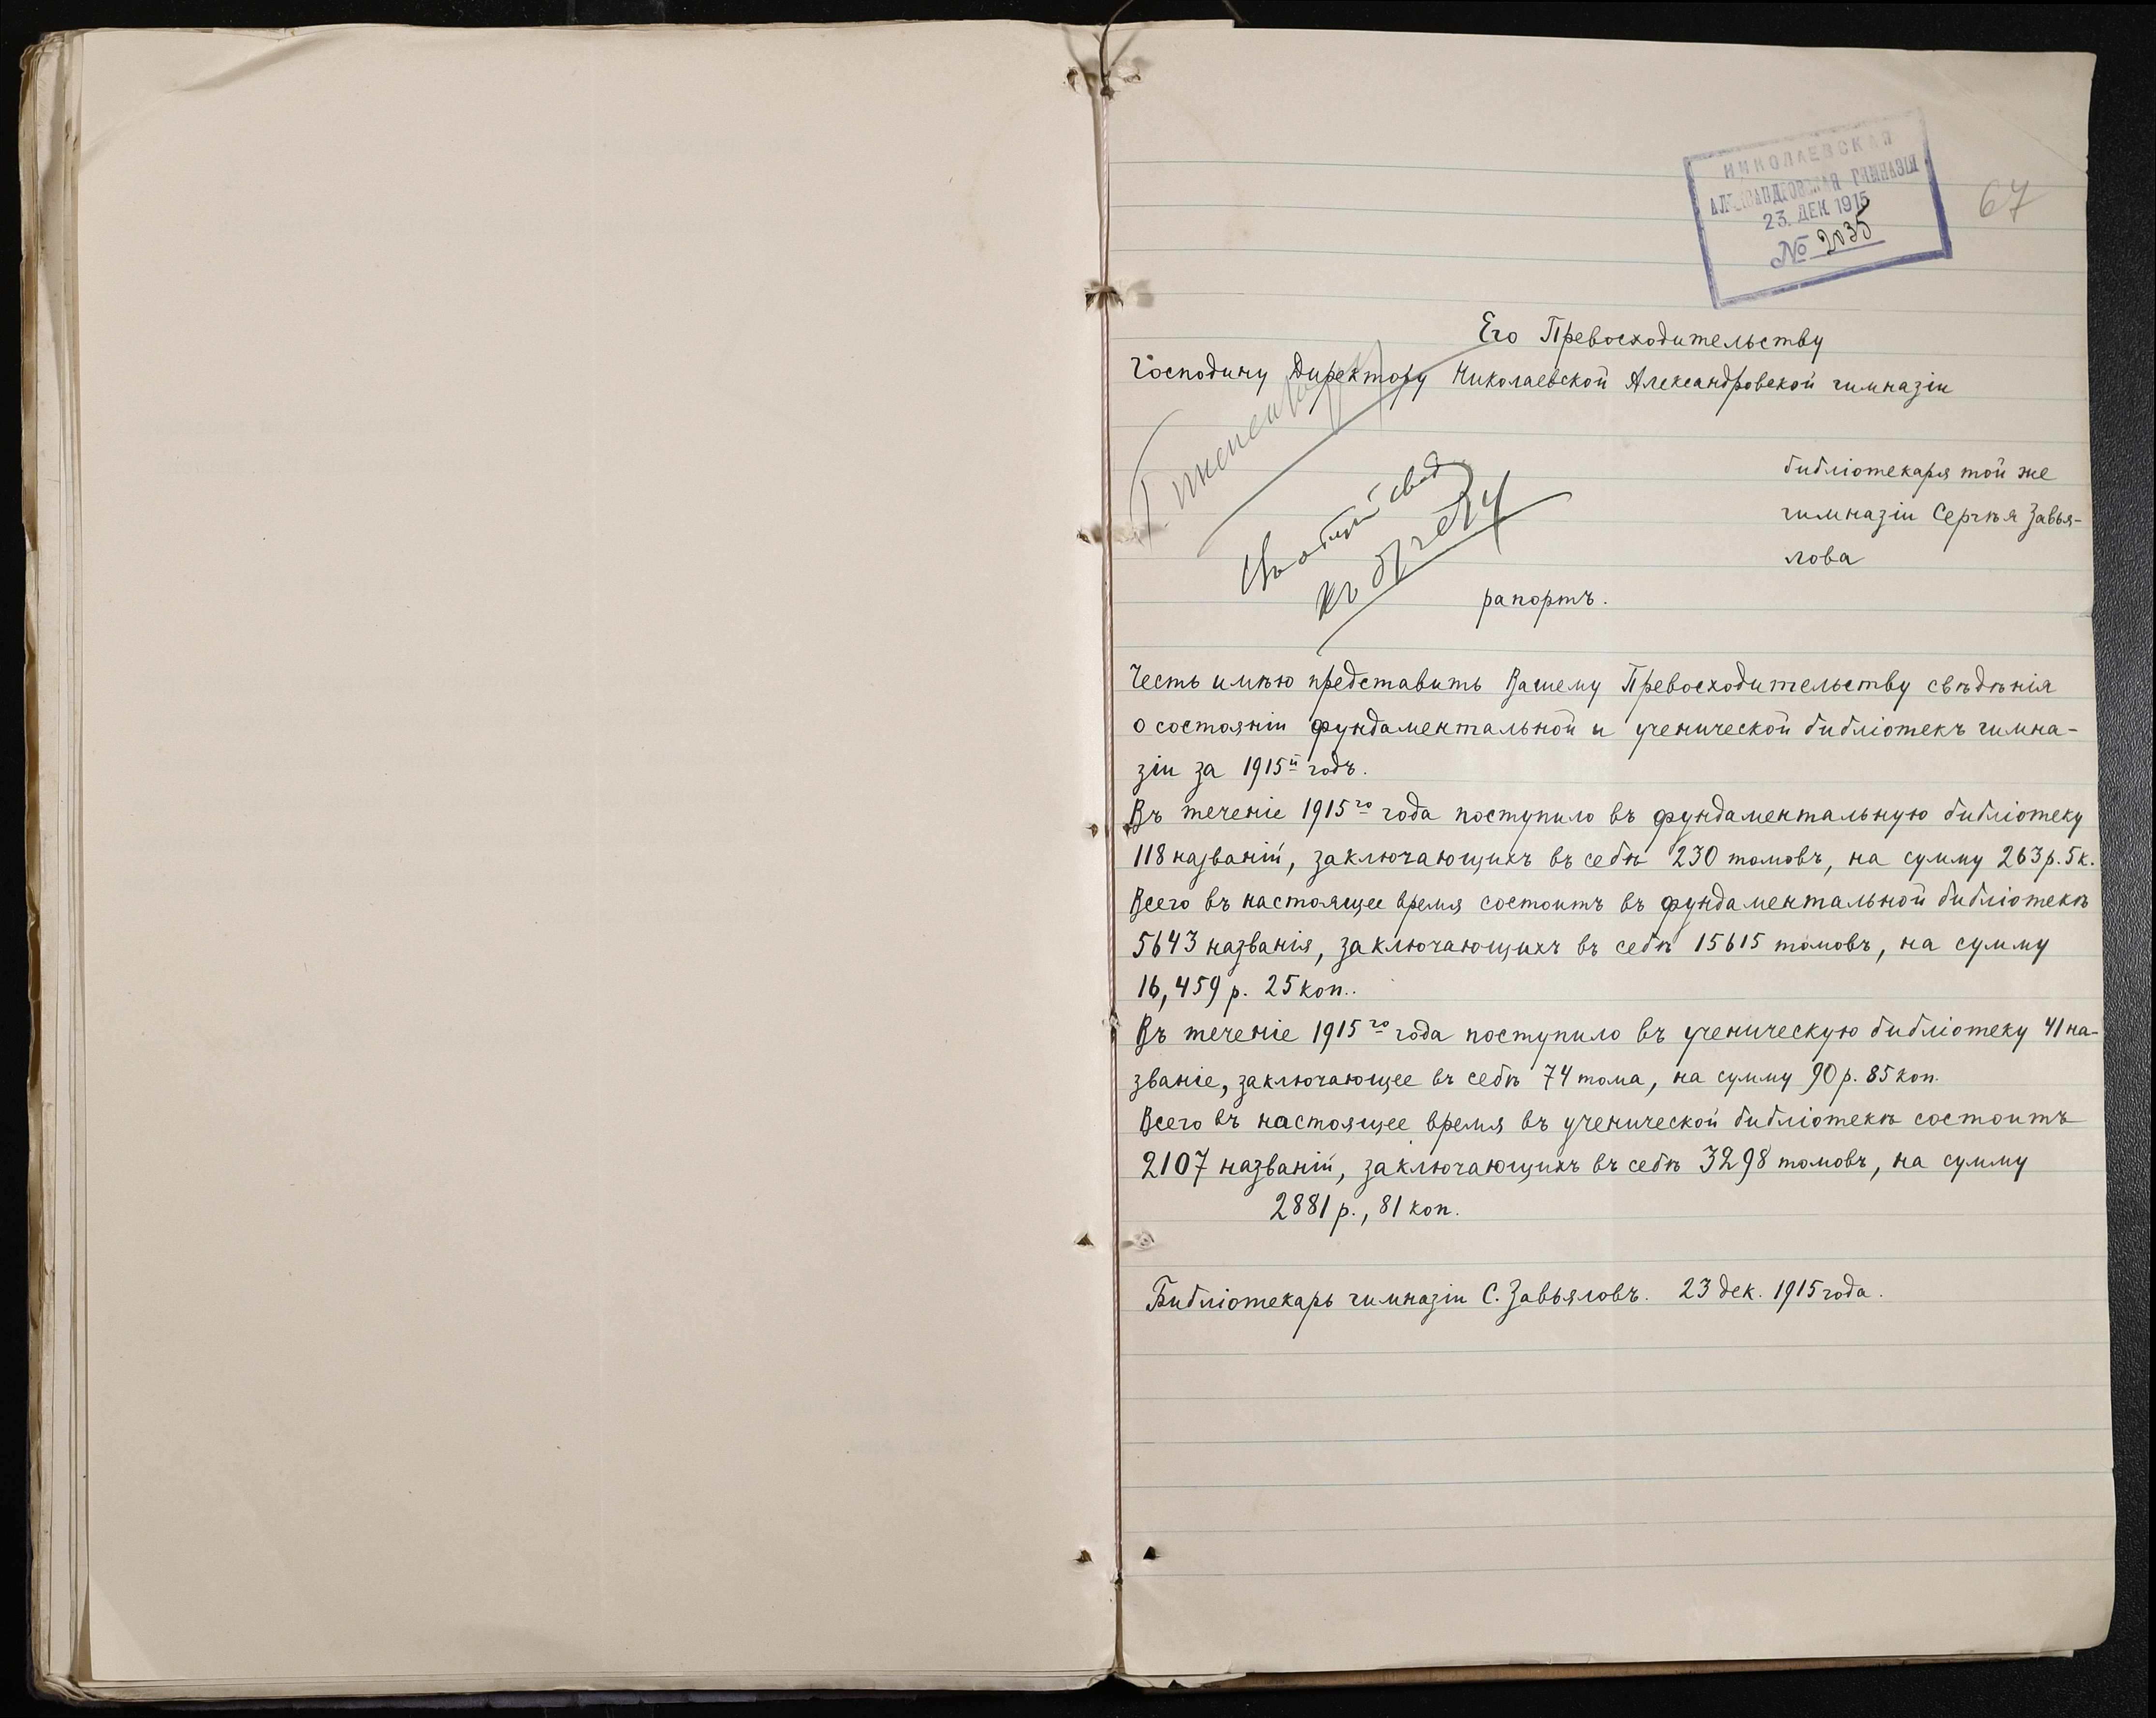 НИКОЛАЕВСКАЯ
АЛЕКСАНДРОВСКАЯ ГИМНАЗІЯ
23. ДЕК. 1915
№ 2035
67
Его Превосходительству
Господину Директору Николаевской Александровской гимназіи
библіотекаря той же
гимназіи Сергѣя Завья-
лова
къ отчету
рапортъ.
Честь имѣю представить Вашему Превосходительству свѣдѣнія
о состояніи фундаментальной и ученической библіотекъ гимна-
зіи за 1915й годъ.
Въ теченіе 1915го года поступило въ фундаментальную библіотеку
118 названій, заключающихъ въ себѣ 230 томовъ, на сумму 263 р. 5 к.
Всего въ настоящее время состоитъ въ фундаментальной библіотекѣ
5643 названія, заключающихъ въ себѣ 15615 томовъ, на сумму
16,459 р. 25 коп..
Въ теченіе 1915го года поступило въ ученическую библіотеку 41 на-
званіе, заключающее въ себѣ 74 тома, на сумму 90 р. 85 коп.
Всего въ настоящее время въ ученической библіотекѣ состоитъ
2107 названій, заключающихъ въ себѣ 3298 томовъ, на сумму
2881 р., 81 коп.
Библіотекарь гимназіи С. Завьяловъ. 23 дек. 1915 года.